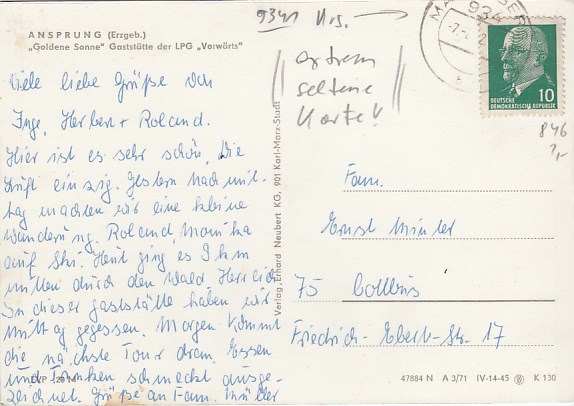 9341 Krs.
ANSPRUNG (Erzgeb.)
„Goldene Sonne" Gaststätte der LPG „Vorwärts"
extrem
seltene
Karte!
934
DEUTSCHE
DEMOKRATISCHE REPUBLIK
10
846
7,-
Viele liebe Grüße von
Inge, Herbert + Roland.
Hier ist es sehr schön, die
Luft einzig. Gestern Nachmit-
tag machten wir eine kleine
Wanderung. Roland, Monika
auf Ski. Heut ging es 7 km
mitten durch den Wald, Herrlich
In dieser Gaststätte haben wir
Mittag gegessen. Morgen kommt
die nächste Tour dran. Essen
und Trinken schmeckt ausge-
zeichnet. Grüße an Fam.
Verlag Erhard Neubert KG, 901 Karl-Marx-Stadt
Fam.
Ernst
75 Cottbus
Friedrich-Ebert-Str. 17
47884 N A 3/71 IV-14-45 K 130